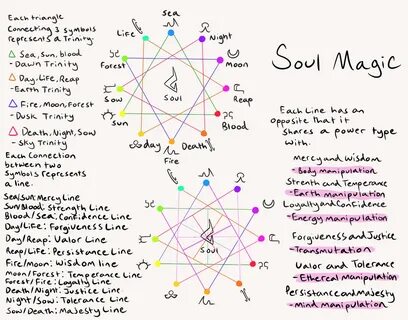 Soul Magic
Each triangle
Connecting 3 symbols
represents a Trinity:
Sea, Sun, blood
-Dawn Trinity
Day, Life, Reap
-Earth Trinity
Fire, Moon, Forest
-Dusk Trinity
Death, Night, Sow
-Sky Trinity
Each Connection
between two
Symbols represents
a line.
Sea/Sun: Mercy Line
Sun/Blood: Strength Line
Blood/Sea: Confidence Line
Day/Life: Forgiveness Line
Day/Reap: Valor Line
Reap/Life: Persistance Line
Fire/Moon: Wisdom line
Moon/Forest: Temperance Line
Forest/Fire: Loyalty Line
Death/Night: Justice Line
Night/Sow: Tolerance Line
Sow/Death: Majesty Line
Sea
Life
Night
Forest
Moon
Sow
Soul
Reap
Sun
Blood
Day
Death
Fire
Soul
Each Line has an
opposite that it
shares a power type
with.
Mercy and Wisdom
-Body manipulation
Strenth and Temperance
-Earth manipulation
Loyalty and Confidence
-Energy manipulation
Forgiveness and Justice
-Transmutation
Valor and Tolerance
-Ethereal Manipulation
Persistance and Majesty
-mind manipulation